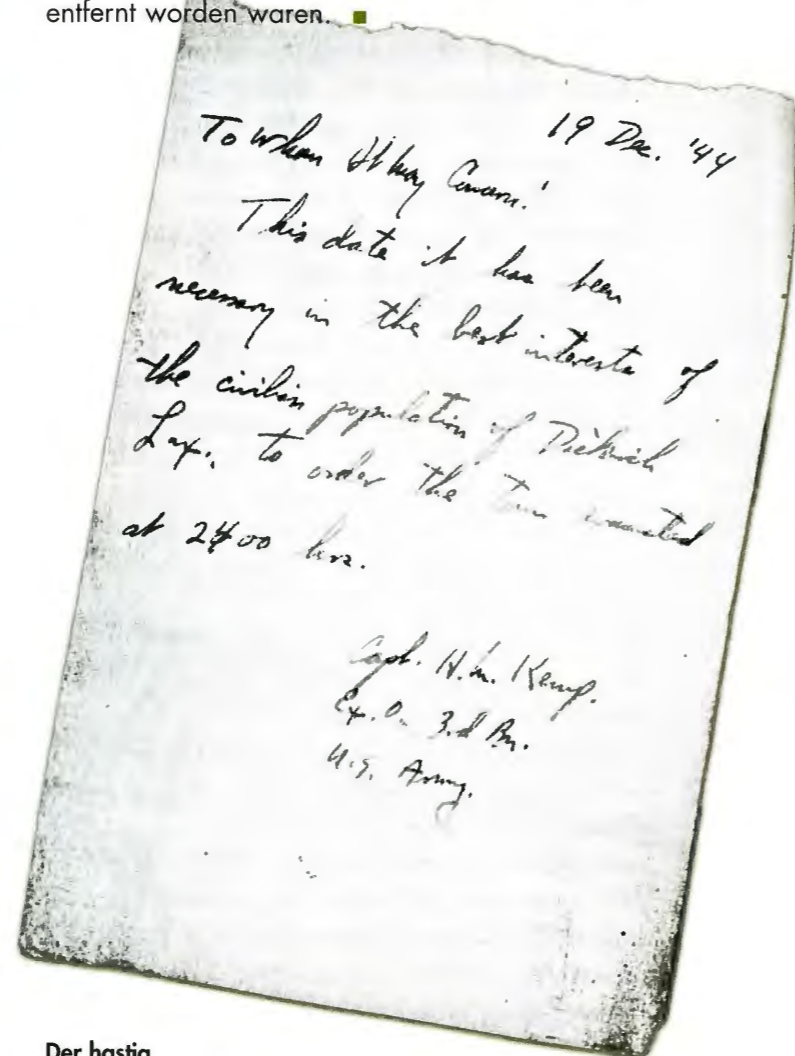 entfernt worden waren.
19 Dec. '44
To Whom It May Concern:
This date it has been
necessary in the best interests of
the civilian population of Diekirch
Lux., to order the town evacuated
at 2400 hrs.
Capt. H.M. Kemp.
Ex. O. 3rd Bn.
U.S. Army.
Der hastig